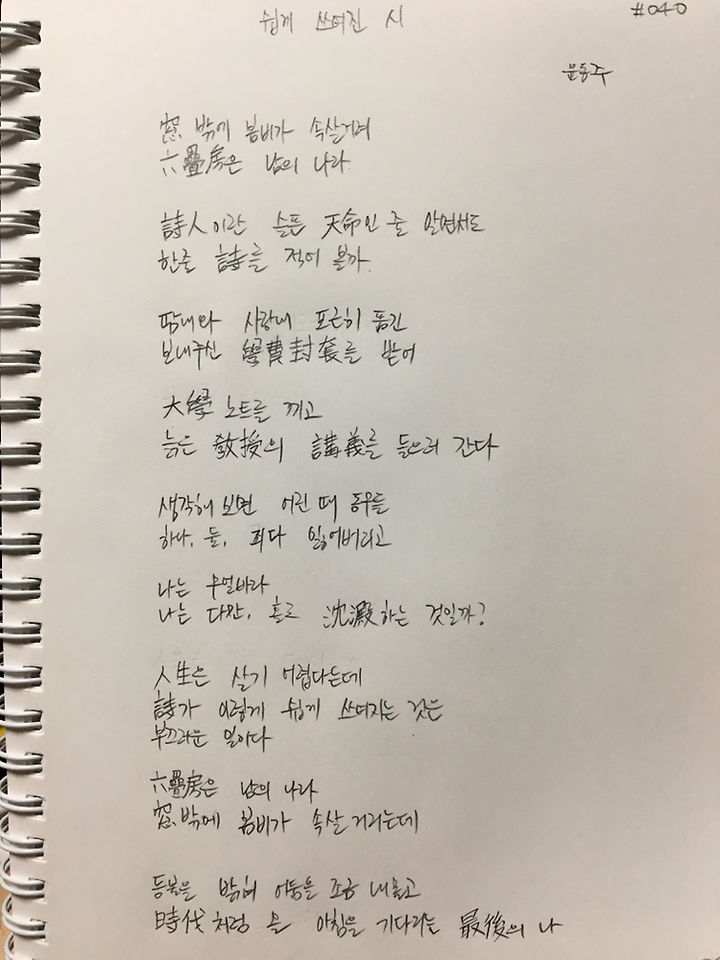 쉽게 쓰여진 시
#040
윤동주
窓 밖에 봄비가 속살거려
六疊房은 남의 나라.
詩人이란 슬픈 天命인 줄 알면서도
한줄 詩를 적어 볼까.
땀내와 사랑내 포근히 품긴
보내주신 學費封套를 받어
大學 노트를 끼고
늙은 敎授의 講義를 들으러 간다
생각해 보면 어린 때 동무들
하나, 둘, 죄다 잃어버리고
나는 무얼바라
나는 다만, 홀로 沈澱하는 것일까?
人生은 살기 어렵다는데
詩가 이렇게 쉽게 쓰여지는 것은
부끄러운 일이다
六疊房은 남의 나라
窓 밖에 봄비가 속살거리는데
등불을 밝혀 어둠을 조금 내몰고
時代처럼 올 아침을 기다리는 最後의 나